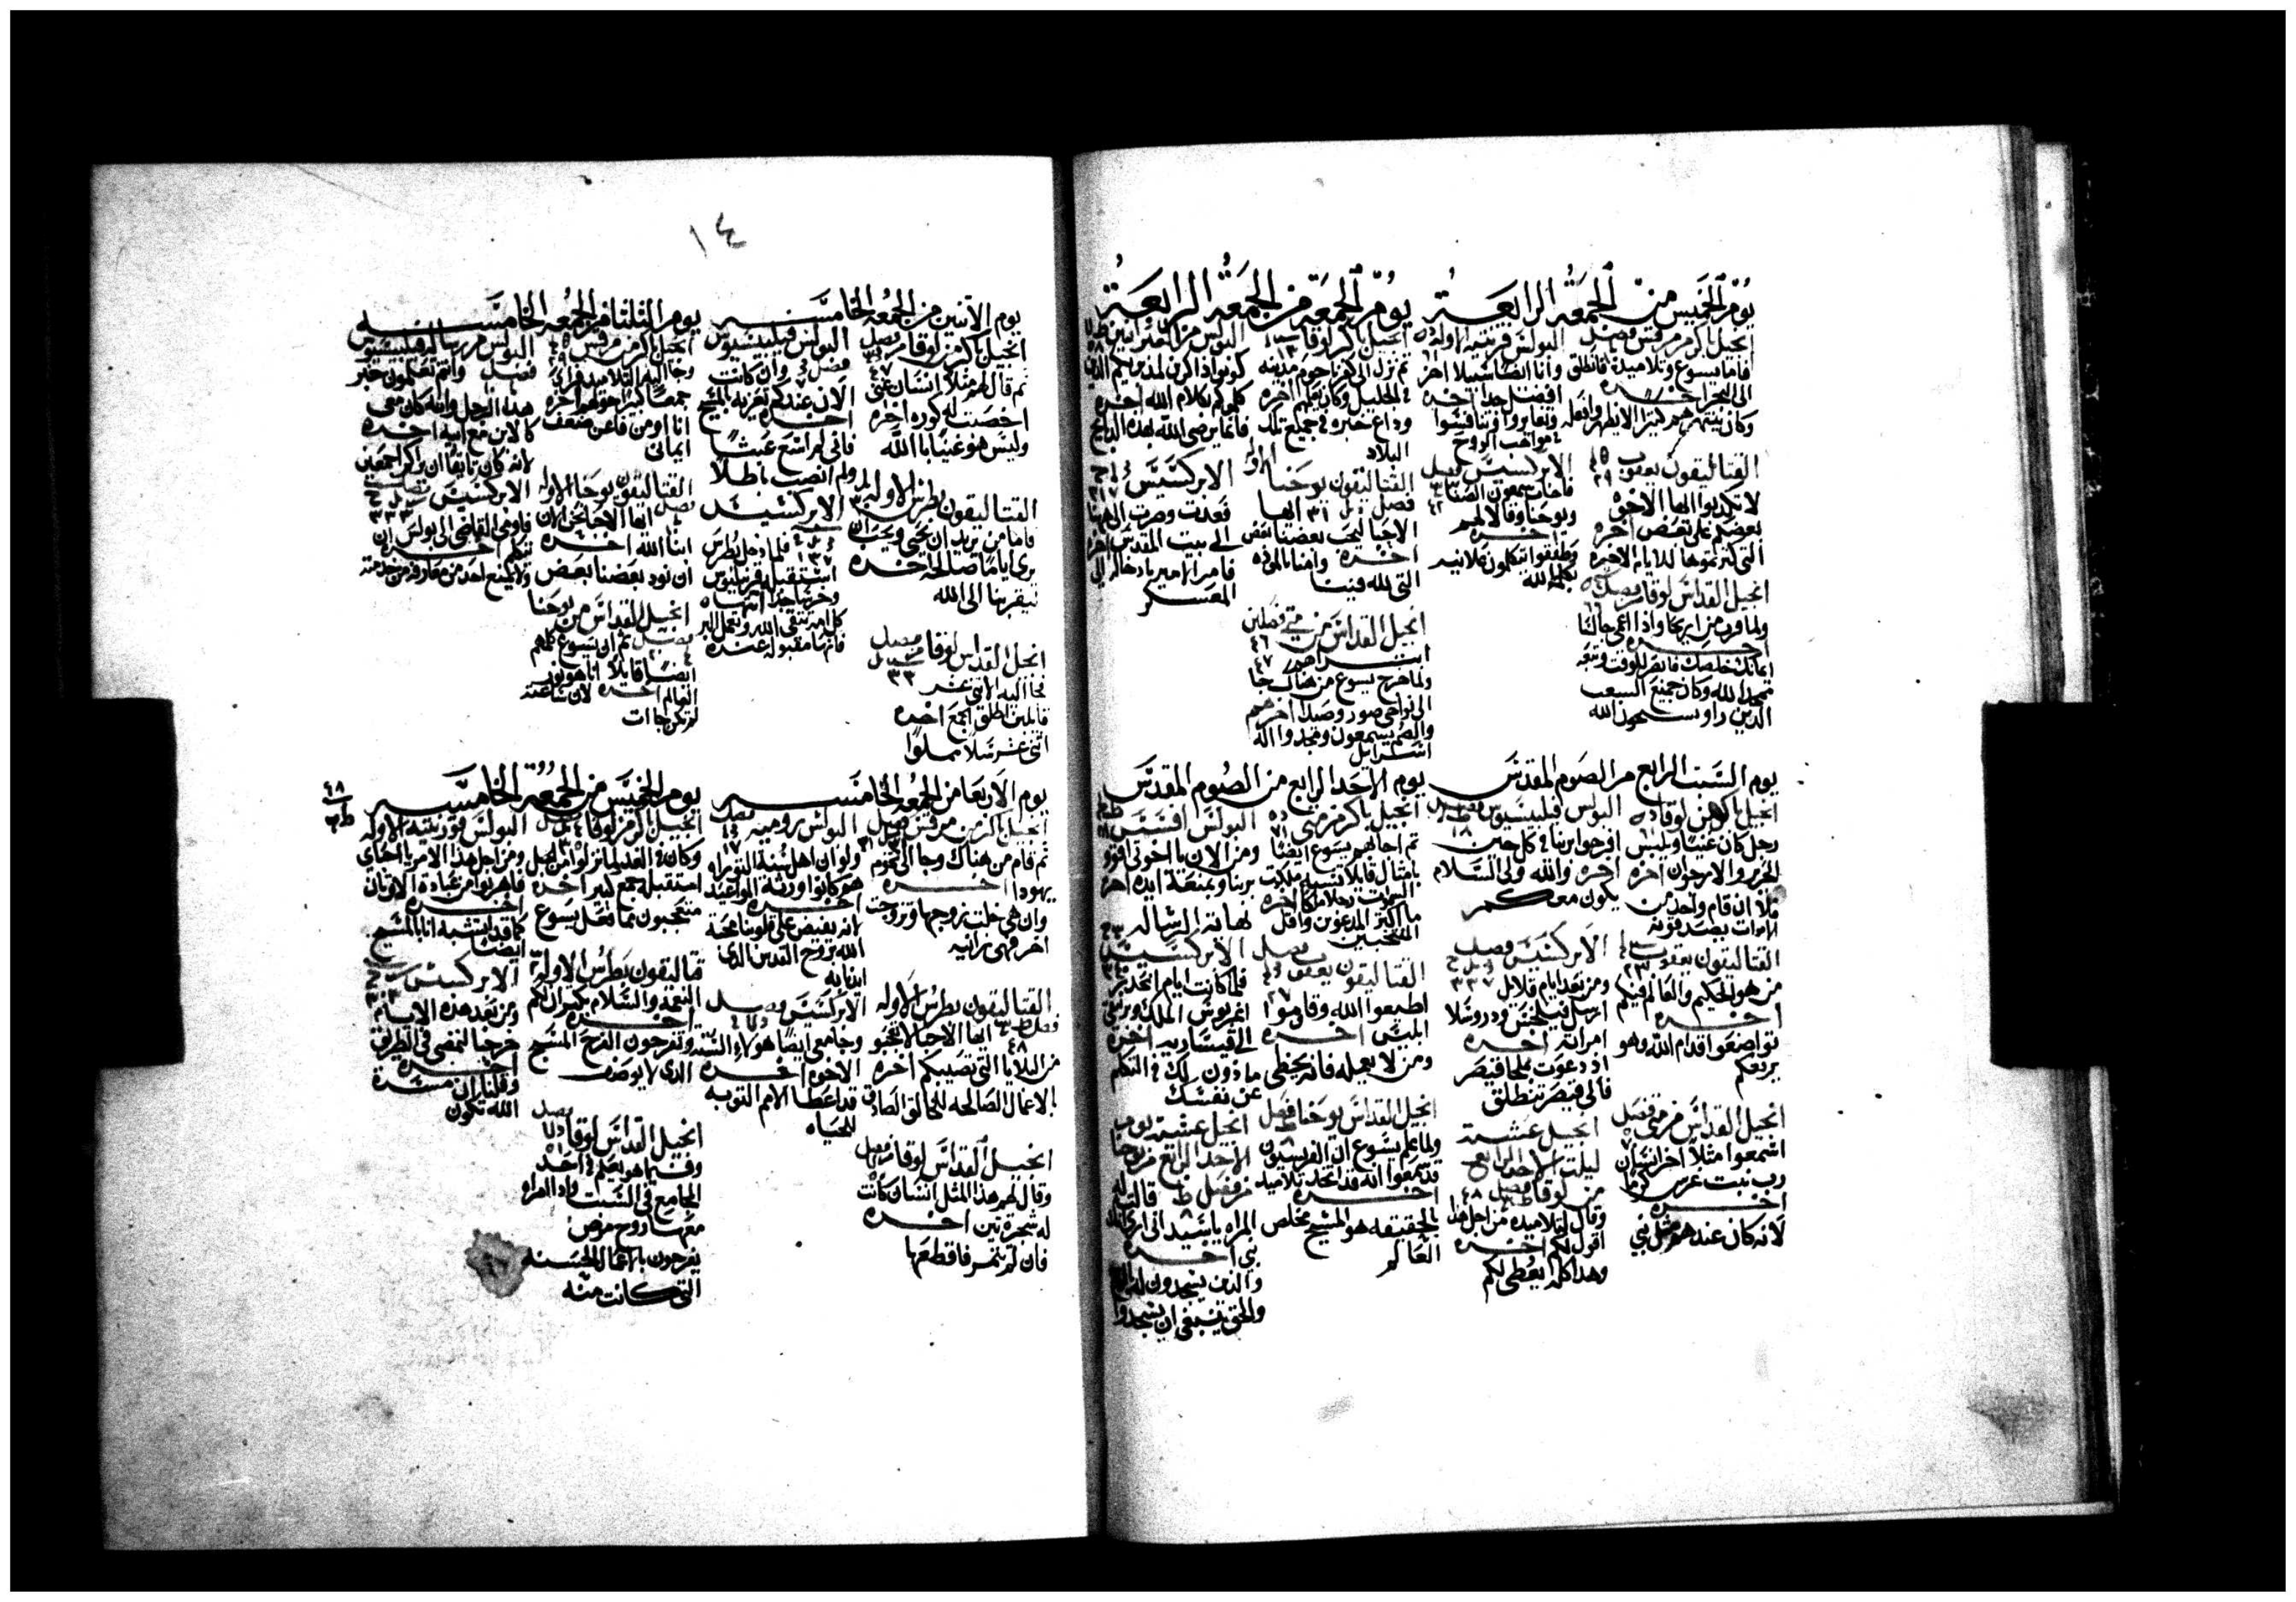 يوم الخميس من الجمعة الرابعة
انجيل باكر من مرقس فصل
فاما يسوع وتلاميذه فانطلق
الى البحر اخره
البولس قرنتيه الاوله
وانا ايضا سبيلا اخر
افضل جدا اخره
مواهب الروح
القتاليقون يعقوب
لا تكذبوا ايها الاخوة
بعضكم على بعض اخره
التى كنزتموها للايام الاخيره
الابركسيس فصل
فاجاب سمعون الصفا
ويوحنا وقالا لهم
اخره
وطفقوا يتكلمون علانيه
بكلمة الله
انجيل القداس لوقا فصل
ولما قرب من اريحا واذا اعمى جالسا
اخره
ايمانك خلصك فابصر للوقت وتبعه
ممجدا لله وكان جميع الشعب
الذين راوا يسبحون الله
يوم الجمعة من الجمعة الرابعة
انجيل باكر لوقا
ثم نزل الى كفرناحوم مدينه
فى الجليل وكان يعلم اخره
وذاع خبره فى جميع تلك
البلاد
البولس من العبرانيين
كونوا ذاكرين لمدبريكم الذين
كلموكم بكلام الله اخره
فانما يرضى الله بهذه الذبايح
القتاليقون يوحنا الاوله
فصل ايها
الاحبا ليحب بعضنا بعض
اخره وامنا بالموده
التى لله فينا
الابركسيس
فعدت وصرت الى هاهنا
الى بيت المقدس اخره
فامر الامير بادخاله الى
المعسكر
انجيل القداس من متى فصلين
٤٦
٤٧
ولما خرج يسوع من هناك جا
الى نواحى صور وصيدا اخرهم
والصم يسمعون ومجدوا اله
اسراييل
يوم السبت الرابع من الصوم المقدس
انجيل باكر من لوقا
رجل كان غنيا ويلبس
الحرير والارجوان اخره
فلا ان قام واحد من
الاموات يصدقونه
البولس فيلبسيوس فصل
١٨
افرحوا بربنا فى كل حين
اخره والله ولى السلام
يكون معكم
القتاليقون يعقوب
٢٣
من هو الحكيم والعالم فيكم
اخره
تواضعوا قدام الله وهو
يرفعكم
الابركسيس فصل
٣٣٧
ومن بعد ايام قلايل
ارسل فيلكس ودروسلا
امراته اخره
اذ دعوت ملجا قيصر
فالى قيصر تنطلق
انجيل القداس من متى فصل
اسمعوا مثلا اخر انسان
رب بيت غرس كرما
اخره
لانه كان عندهم مثل نبى
انجيل عشية
ليلة الاحد الرابع
من لوقا فصل ٤٨
وقال لتلاميذه من اجل هذا
اقول لكم اخره
وهذا كله يعطى لكم
يوم الاحد الرابع من الصوم المقدس
انجيل باكر من متى
ثم اجابهم يسوع ايضا
بامثال قايلا تشبه ملكوت
السموات رجلا ملكا اخره
ما اكثر المدعوين واقل
المنتخبين
البولس افسس
ومن الان يا اخوتى اقووا
بربنا وبمنعة ايده اخره
نهاية الرساله
القتاليقون يعقوب فصل
٢٧
اطيعوا الله وقاوموا
ابليس اخره
ومن لا يعمله فانه يخطى
الابركسيس
فلما كانت ايام انحدر
اغريبوس الملك وبرنيقى
الى قيساريه اخره
ماذون لك فى التكلم
عن نفسك
انجيل القداس يوحنا فصل
ولما علم يسوع ان الفريسيون
قد سمعوا انه قد اتخذ تلاميذ
اخره
بالحقيقه هو المسيح مخلص
العالم
انجيل عشية يوم
الاحد الرابع من يوحنا
من فصل قالت له
المراه ياسيد انى ارى انك
نبى اخره
والذين يسجدون له بالروح
والحق ينبغى ان يسجدوا
١٤
يوم الاثنين من الجمعه الخامسه
انجيل باكر من لوقا فصل
٤٧
ثم قال لهم مثلا انسان غنى
اخصبت له كوره اخره
وليس هو غنيا بالله
البولس فيلبسيوس
فصل وان كانت
الان عندكم تعزيه بالمسيح
اخره
فانى لم اسع عبثا
ولم انصب باطلا
القتاليقون بطرس الاوله
فاما من يريد ان يحيى ويحب ان
يرى اياما صالحه اخره
ليقربنا الى الله
الابركسيس
فلما دخل بطرس
استقبله قرنيليوس
وخر ساجدا
كل امة تتقى الله وتعمل البر
فانها مقبوله عنده
انجيل القداس لوقا فصل
٣٣
فجا اليه الاثنى عشر
قايلين اطلق الجمع اخره
اثنى عشر سلا مملوا
يوم الثلثا من الجمعه الخامسه
انجيل باكر من مرقس
وجا اليه التلاميذ فراى
جمعا كبيرا حولهم اخره
انا اومن فاعن ضعف
ايمانى
البولس من رسالة فيلبسيوس
فصل وانتم تعلمون خبر
هذا الرجل وانه كان معى
كالابن مع ابيه اخره
لانه كان تايقا ان يراكم اجمعين
القتاليقون يوحنا الاوله
فصل ايها الاحبا نحن الان
ابنا الله اخره
ان نود بعضنا بعض
الابركسيس
٣٣٣
فاومى القاضى الى بولس ان
يتكلم اخره
ولا يمنع احد من معارفه من خدمته
انجيل القداس من يوحنا
فصل ثم ان يسوع كلمهم
ايضا قايلا انا هو نور
العالم اخره لان ساعته
لم تكن جات
يوم الاربعا من الجمعه الخامسه
انجيل باكر من مرقس فصل
ثم قام من هناك وجا الى تخوم
يهودا اخره
وان هى خلت زوجها وتزوجت
اخر فهى زانيه
البولس روميه فصل
١٧
ولو ان اهل سنة التوراه
هو كانوا ورثة المواعيد
اخره
لانه يفيض على قلوبنا محبة
الله بروح القدس الذى
ايدنا به
القتاليقون بطرس الاوله
فصل ايها الاحبا لا تعجبوا
٤٨
من البلايا التى تصيبكم اخره
بالاعمال الصالحه للخالق الصادق
الابركسيس فصل
وجا معى ايضا هولاء الستة
الاخوه اخره
قد اعطا الامم التوبه
للحياه
انجيل القداس لوقا فصل
وقال لهم هذا المثل انسان كانت
له شجرة تين اخره
فان لم تثمر فاقطعها
يوم الخميس من الجمعة الخامسه
٤٨
انجيل باكر من لوقا
وكان فى الغد لما نزلوا من الجبل
استقبله جمع كبير اخره
متعجبون مما فعل يسوع
البولس قورنتيه الاوله
ومن اجل هذا الامر يا احباى
فاهربوا من عبادة الاوثان
اخره
كما قد اتشبه انا بالمسيح
ايضا
قتاليقون بطرس الاوله
النعمه والسلام يكثران لكم
اخره
وتفرحون الفرح المسبح
الذى لا يوصف
الابركسيس
ومن بعد هذه الايام
خرجنا لنمضى فى الطريق
اخره
وقلنا ان مسرة
الله تكون
انجيل القداس لوقا فصل
وفيما هو يعلم فى احد
المجامع فى السبت واذا امراه
معها روح مرض
يفرحون بالاعمال الحسنه
التى كانت منه